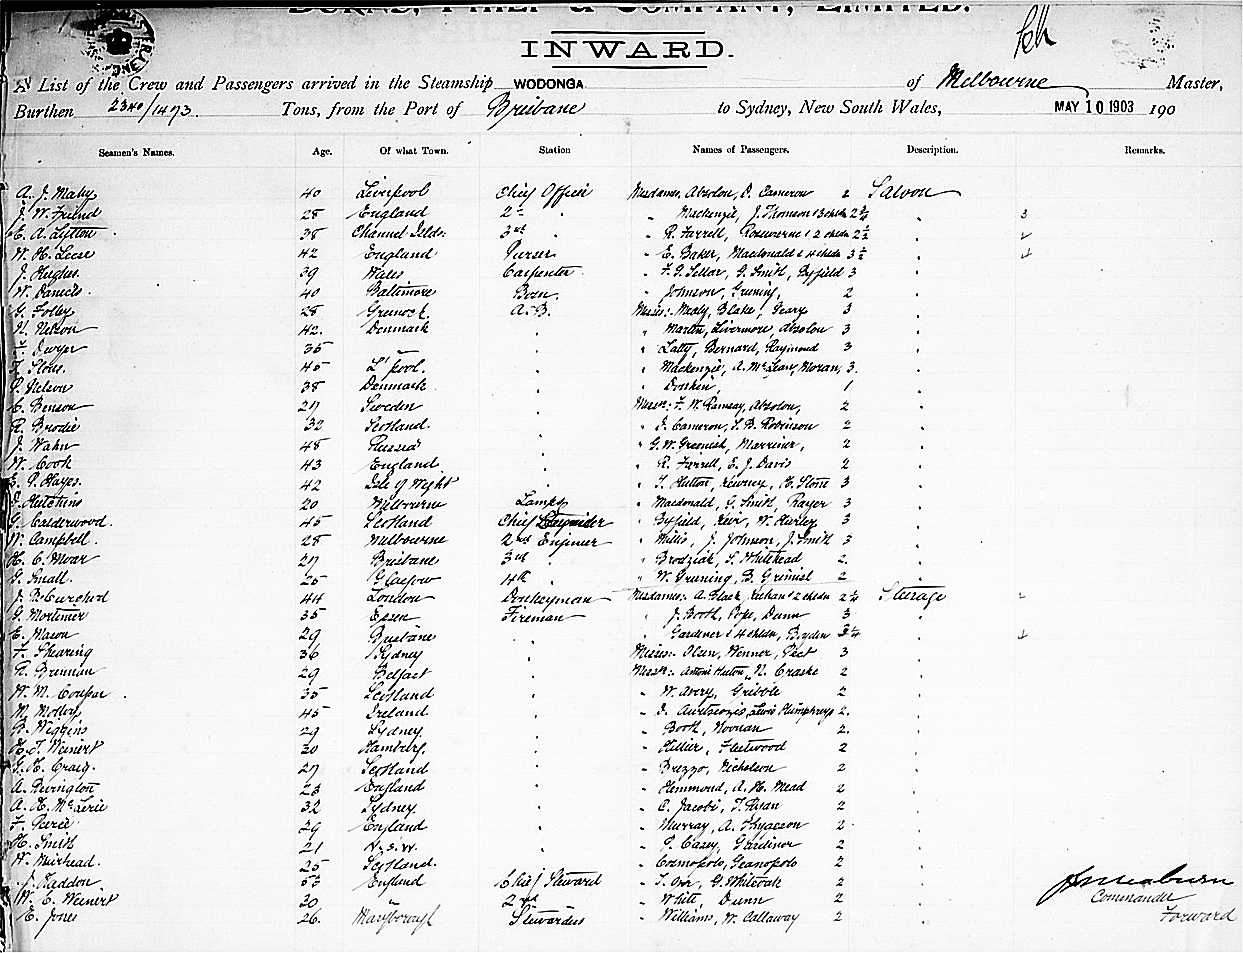 BURNS, PHILP & COMPANY, LIMITED.
INWARD.
A List of the Crew and Passengers arrived in the Steamship WODONGA of Melbourne Master,
Burthen 2340/1473 Tons, from the Port of Brisbane to Sydney, New South Wales, MAY 10 1903 190
Seamen's Names. Age. Of what Town. Station Names of Passengers. Description. Remarks.
40 Liverpool Chief Officer Mesdames. Absolon, D. Cameron 2 Saloon
J. W. Friend 28 England 2nd " Mackenzie, J. Thomson & 3 chldn 3
E. A. Lutton 38 Channel Islds. 3rd " R. Farrell, & 2 chldn
W. H. Leese 42 England Purser " E. Baker, Macdonald & 4 chldn
J. Hughes 39 Wales Carpenter " Smith, Byfield 3
W. Daniels 40 Baltimore Bosn. " Johnson, Gruning, 2
G. Foley 28 Greenock A.B. Misses: Mealy, Blake, Geary 3
Nelson 42. Denmark " Martin, Livermore, Absolon 3
Dwyer 35 " " Latty, Bernard, Raymond 3
45 L'pool. " Mackenzie, A. McLean, Moran, 3.
P. Nelson 38 Denmark " Donkin, 1
C. Benson 27 Sweden Messrs: F. W. Ramsay, Absolon, 2
R. Brodie 32 Scotland. " D. Cameron, S. B. Robinson 2
J. Wahn 48 Russia " G. W. Greenish, Marriner, 2
W. Cook 43 England " R. Farrell, E. J. Davis 2
E. P. Hayes. 42 Isle of Wight " T. Hutton, H. Stone 3
J. Hutchins 20 Melbourne Lamps " Macdonald, G. Smith, Rayer 3
G. Calderwood. 45 Scotland Chief Engineer " Byfield, Keir, W. Hurley 3
W. Campbell. 28 Melbourne 2nd Engineer " Willis, J. Johnson, J. Smith 3
H. C. Moar 27 Brisbane 3rd " Brodziak, S. Whitehead 2.
G. Small. 25 Glasgow 4th " W. Gruning, B. Grimish 2
J. B. 44 London Donkeyman Mesdames: A. Black, & 2 chldn Steerage
G. Mortimer 35 Essex Fireman " J. Booth, Pope, Dunn 3
E. Mason 29 Brisbane " Gardener & 4 chldn, Boyden
F. Shearing 36 Sydney Misses: Olsen, Wenner, Peet 3
R. Brennan 29 Belfast Messrs: N. Craske 2
W. M. Cowper 35 Scotland " W. Avery, Gribble 2
M. Molloy 45 Ireland " Lewis Humphreys 2.
R. Wiggins 29 Sydney " Booth, Noonan 2.
H. T. Weinert 30 Hamburg. " Hillier, Fleetwood 2
G. H. Craig. 27 Scotland " Brezzo, Nicholson 2
A. Rivington 23 England " Hammond, A. H. Mead 2
A. H. McLerie 32 Sydney " C. Jacobi, T. Ryan 2
F. Peirce 29 England " Murray, A. Thygeson 2
H. Smith 21 N.S.W. " P. Casey, Gardiner 2
W. Muirhead. 25 Scotland. " Cosmopolo, Geanopolo 2
J. Haddon 53 England Chief Steward " T. Orr, G. Whitcock 2
W. E. Weinert 30 " 2nd " " White, Dunn 2
Commander
E. Jones 26. Maryborough Stewardess " Williams, W. Callaway 2 Forward